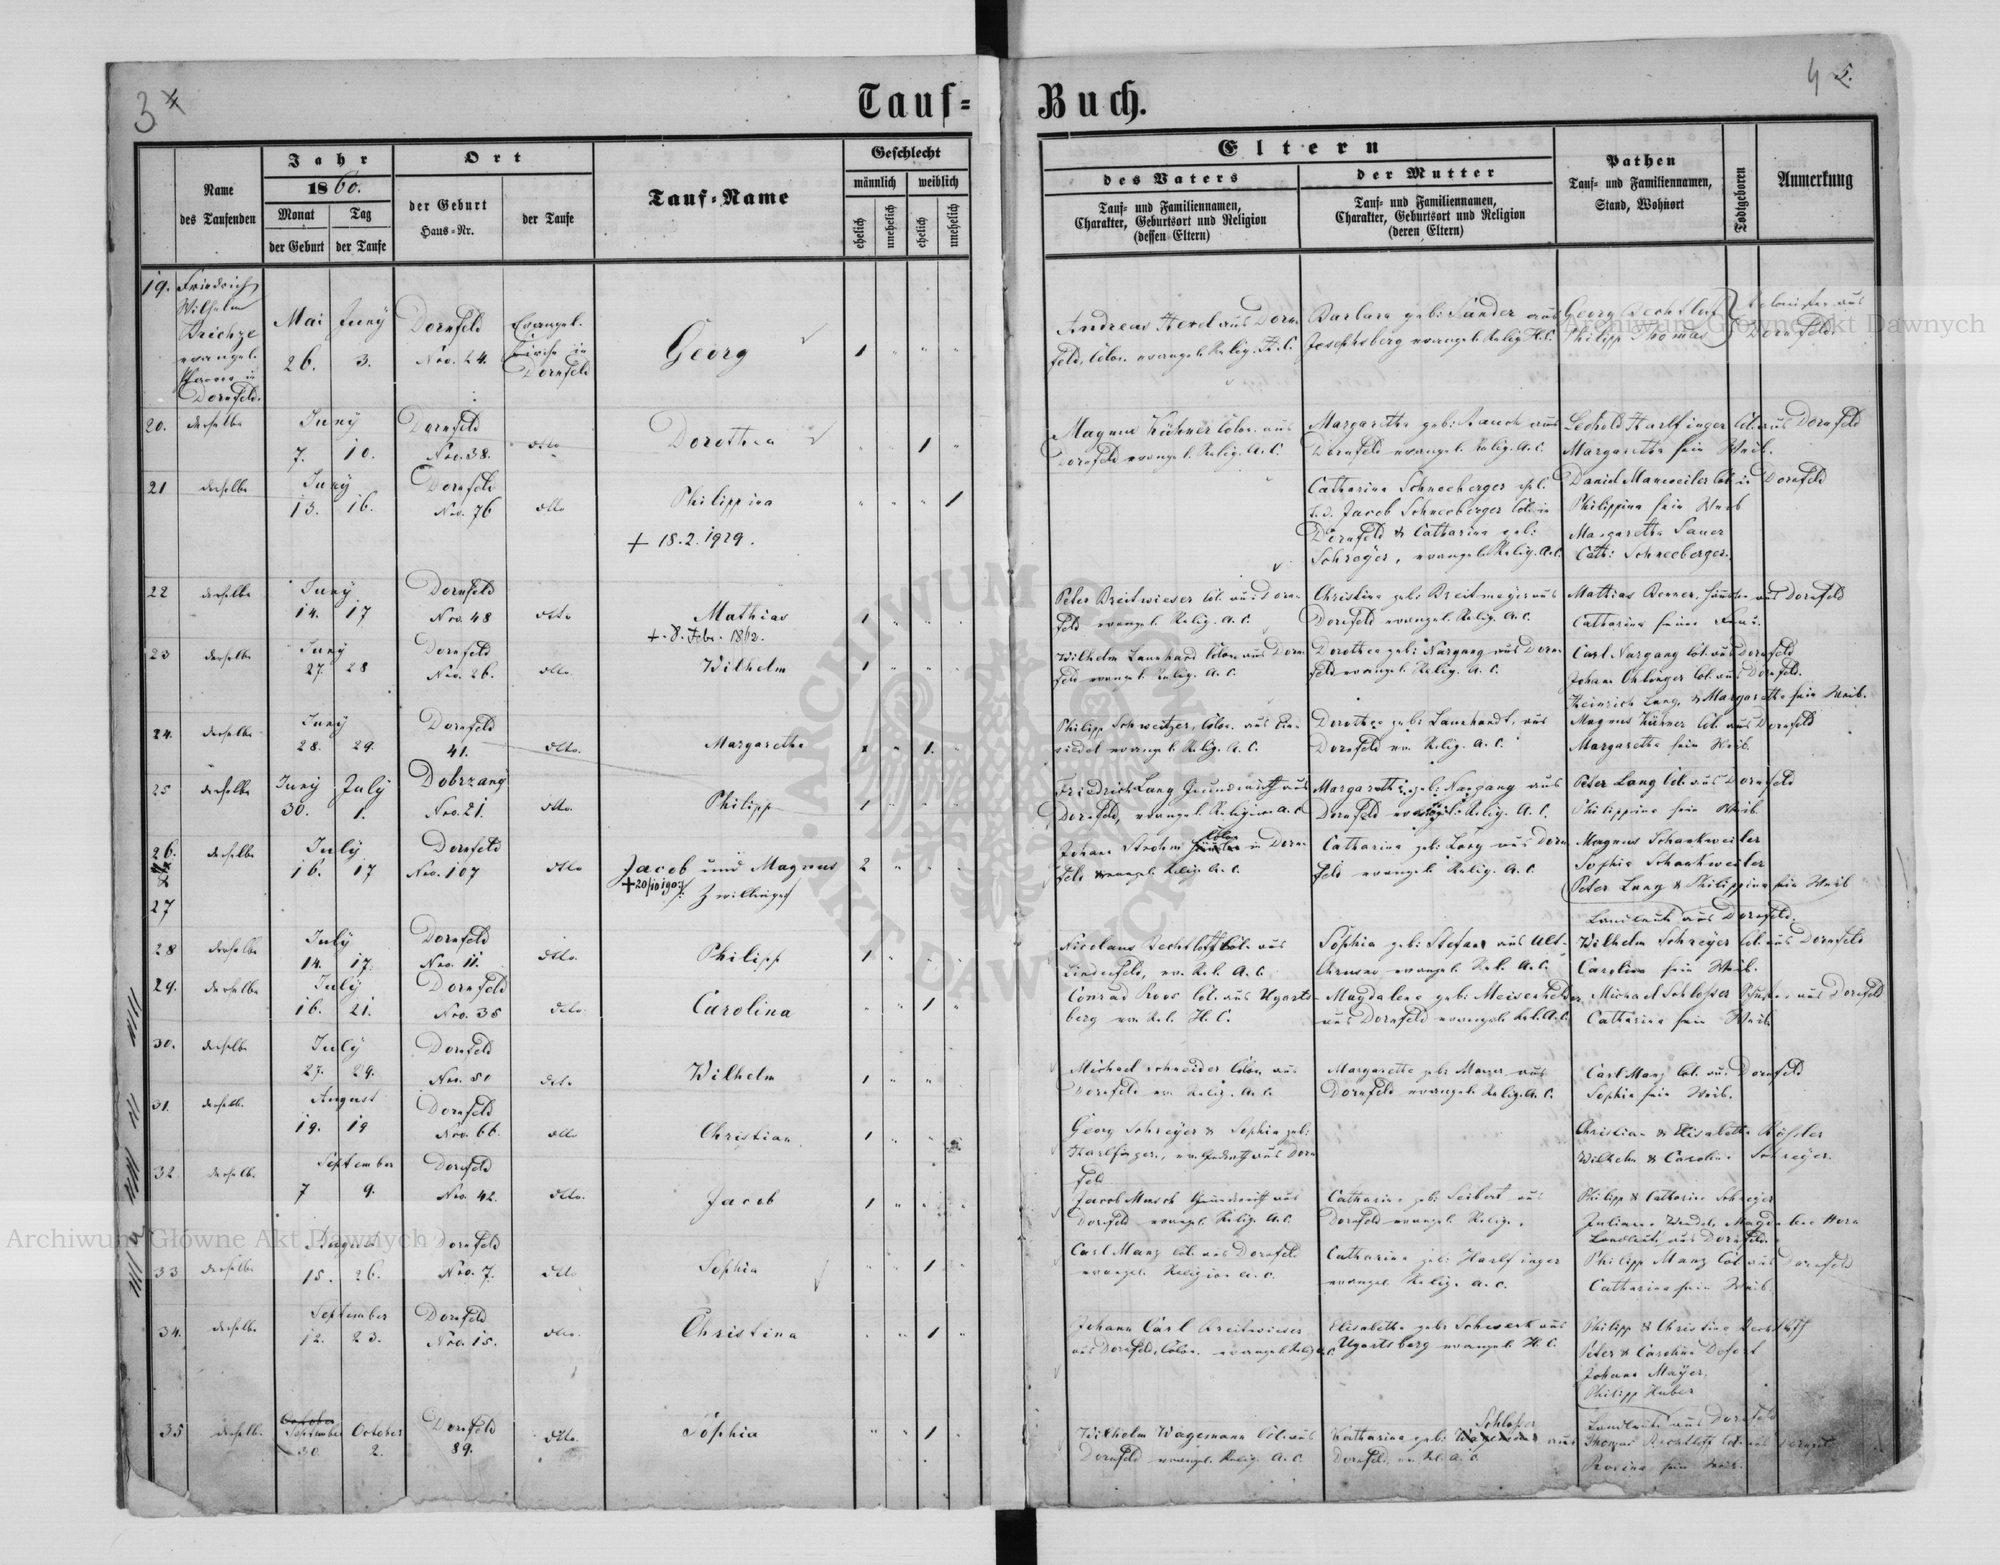 3 4
Tauf=
Buch.
4 5.
Name
des Taufenden
Jahr
1860.
Monat
Tag
der Geburt
der Taufe
Ort
der Geburt
Haus=Nr.
der Taufe
Tauf=Name
Geschlecht
männlich
weiblich
ehelich
unehelich
ehelich
unehelich
Eltern
des Vaters
Tauf= und Familiennamen,
Charakter, Geburtsort und Religion
(dessen Eltern)
der Mutter
Tauf= und Familiennamen,
Charakter, Geburtsort und Religion
(deren Eltern)
Pathen
Tauf= und Familiennamen,
Stand, Wohnort
Todtgeboren
Anmerkung
19. Friedrich
Wilhelm
evangel.
Pfarrer in
Dornfeld.
Mai Juny
26. 3.
Dornfeld
Nro. 24.
Evangel.
Kirche in
Dornfeld
Georg
1
Andreas aus Dorn-
feld, Colon. evangel. Relig. H.C.
Barbara geb: Sander aus
Josephsberg evangel. Relig. H.C.
Georg Bechtloff
Philipp Thomas
Dornfeld.
20. derselbe
Juny
7. 10.
Dornfeld
Nro. 38.
dtto
Dorothea
1
Magnus Kühner Colon. aus
Dornfeld evangel. Relig. A.C.
Margaretha geb: Rauch aus
Dornfeld evangel. Relig. A.C.
Leopold Harlfinger Col. aus Dornfeld
Margaretha sein Weib.
21 derselbe
Juny
13. 16.
Dornfeld
Nro. 76
dtto
Philippina
+ 18.2.1929.
1
Catharina Schneeberger
Jacob Schneeberger Col. in
Dornfeld & Catharina geb:
Schreyer, evangel. Relig. A.C.
Daniel Manweiler Col. in Dornfeld
Philippina sein Weib
Margaretha Sauer
Cath: Schneeberger.
22 derselbe
Juny
14. 17
Dornfeld
Nro. 48
dtto
Mathias
+ 8. Febr. 1862.
1
Peter Breitwieser Col. aus Dorn-
feld evangel. Relig. A.C.
Christina geb: Breitmayer aus
Dornfeld evangel. Relig. A.C.
Mathias aus Dornfeld
Catharina seine Frau.
23 derselbe
Juny
27. 28
Dornfeld
Nro. 26.
dtto
Wilhelm
1
Wilhelm Launhard Colon. aus Dorn-
feld evangel. Relig. A.C.
Dorothea geb: Nargang aus Dorn-
feld evangel. Relig. A.C.
Carl Nargang Col. aus Dornfeld
Johann Ohlinger Col. aus Dornfeld.
Heinrich Lang & Margaretha sein Weib.
24. derselbe
Juny
28. 29.
Dornfeld
41.
dtto.
Margaretha
1.
Philipp Schweitzer, Colon. aus Ein-
siedel evangel. Relig. A.C.
Dorothea geb: Launhardt, aus
Dornfeld ev. Relig. A.C.
Magnus Kühner Col. aus Dornfeld
Margaretha sein Weib.
25 derselbe
Juny July
30. 1.
Dobrzany
Nro. 21.
dtto.
Philipp
1
Friedrich Lang Grundwirth aus
Dornfeld, evangel. Religion A.C.
Margaretha geb: Nargang aus
Dornfeld Relig. A.C.
Peter Lang Col. aus Dornfeld
Philippina sein Weib
26. derselbe
27
July
16. 17
Dornfeld
Nro. 107
dtto
Jacob und Magnus
+20/10 1907
Zwillinge
2
Johann Strohm Colon in Dorn-
feld evangel. Relig. A.C.
Catharina geb: Lang aus Dorn-
feld evangel. Relig. A.C.
Magnus Schankweiler
Sophia Schankweiler
Peter Lang & Philippina sein Weib
Landleute aus Dornfeld.
28 derselbe
July
14. 17.
Dornfeld
Nro. 11.
dtto.
Philipp
1
Nicolaus Bechtloff Col. aus
Lindenfeld, ev. Rel. A.C.
Sophia geb: Stefan aus Ult-
evangel. Rel. A.C.
Wilhelm Schreyer Col. aus Dornfeld
Carolina sein Weib.
29. derselbe
July
16. 21.
Dornfeld
Nro. 35
dtto.
Carolina
1
Conrad Roos Col. aus Ugarts-
berg ev. Rel. H.C.
Magdalena geb: Meisenhelder
aus Dornfeld evangel. Rel. A.C.
Michael Schlosser aus Dornfeld
Catharina sein Weib
30. derselbe
July
27. 29.
Dornfeld
Nro. 50
dtto.
Wilhelm
1
Michael Schneider Colon. aus
Dornfeld ev. Relig. A.C.
Margaretha geb: aus
Dornfeld evangel. Relig. A.C.
Carl Manz Col. aus Dornfeld
Sophia sein Weib.
31. derselb.
August
19. 19
Dornfeld
Nro. 66.
dtto
Christian
1
Georg Schreyer & Sophia geb:
Harlfinger, aus Dorn-
feld
Christian & Elisabetha Rößler
Wilhelm & Carolina Schreyer.
32 derselbe.
September
7 9.
Dornfeld
Nro. 42.
dtto.
Jacob
1
Jacob Grundwirth aus
Dornfeld evangel. Relig. A.C.
Catharina geb: Seibert aus
Dornfeld evangel. Relig.
Philipp & Catharina Schreyer
Juliana Wendel, Magdalena Horn
Landleute aus Dornfeld.
33 derselbe
August
15. 26.
Dornfeld
Nro. 7.
dtto
Sophia
1
Carl Manz Col. aus Dornfeld
evangel. Religion A.C.
Catharina geb: Harlfinger
evangel. Relig. A.C.
Philipp Manz Col. aus Dornfeld
Catharina sein Weib.
34. derselbe
September
12. 23.
Dornfeld
Nro. 15.
dtto.
Christina
1
Johann Carl Breitwieser
aus Dornfeld, Colon. evangel. Relig. A.C.
Elisabetha geb: Schwerk aus
Ugartsberg evangel. H.C.
Philipp & Christina Bechtloff
Peter & Carolina
Johann Mayer,
Philipp Huber
Landleute aus Dornfeld
35 derselb.
October
September October
30. 2.
Dornfeld
89.
dtto.
Sophia
1
Wilhelm Wagemann Col. aus
Dornfeld evangel. Relig. A.C.
Schlosser
Katharina geb: aus
Dornfeld, ev. Rel. A.C.
Thomas Bechtloff Col. aus Dornfeld
Rosina sein Weib.
Archiwum Główne Akt Dawnych
Archiwum Główne Akt Dawnych
ARCHIWUM GŁÓWNE AKT DAWNYCH